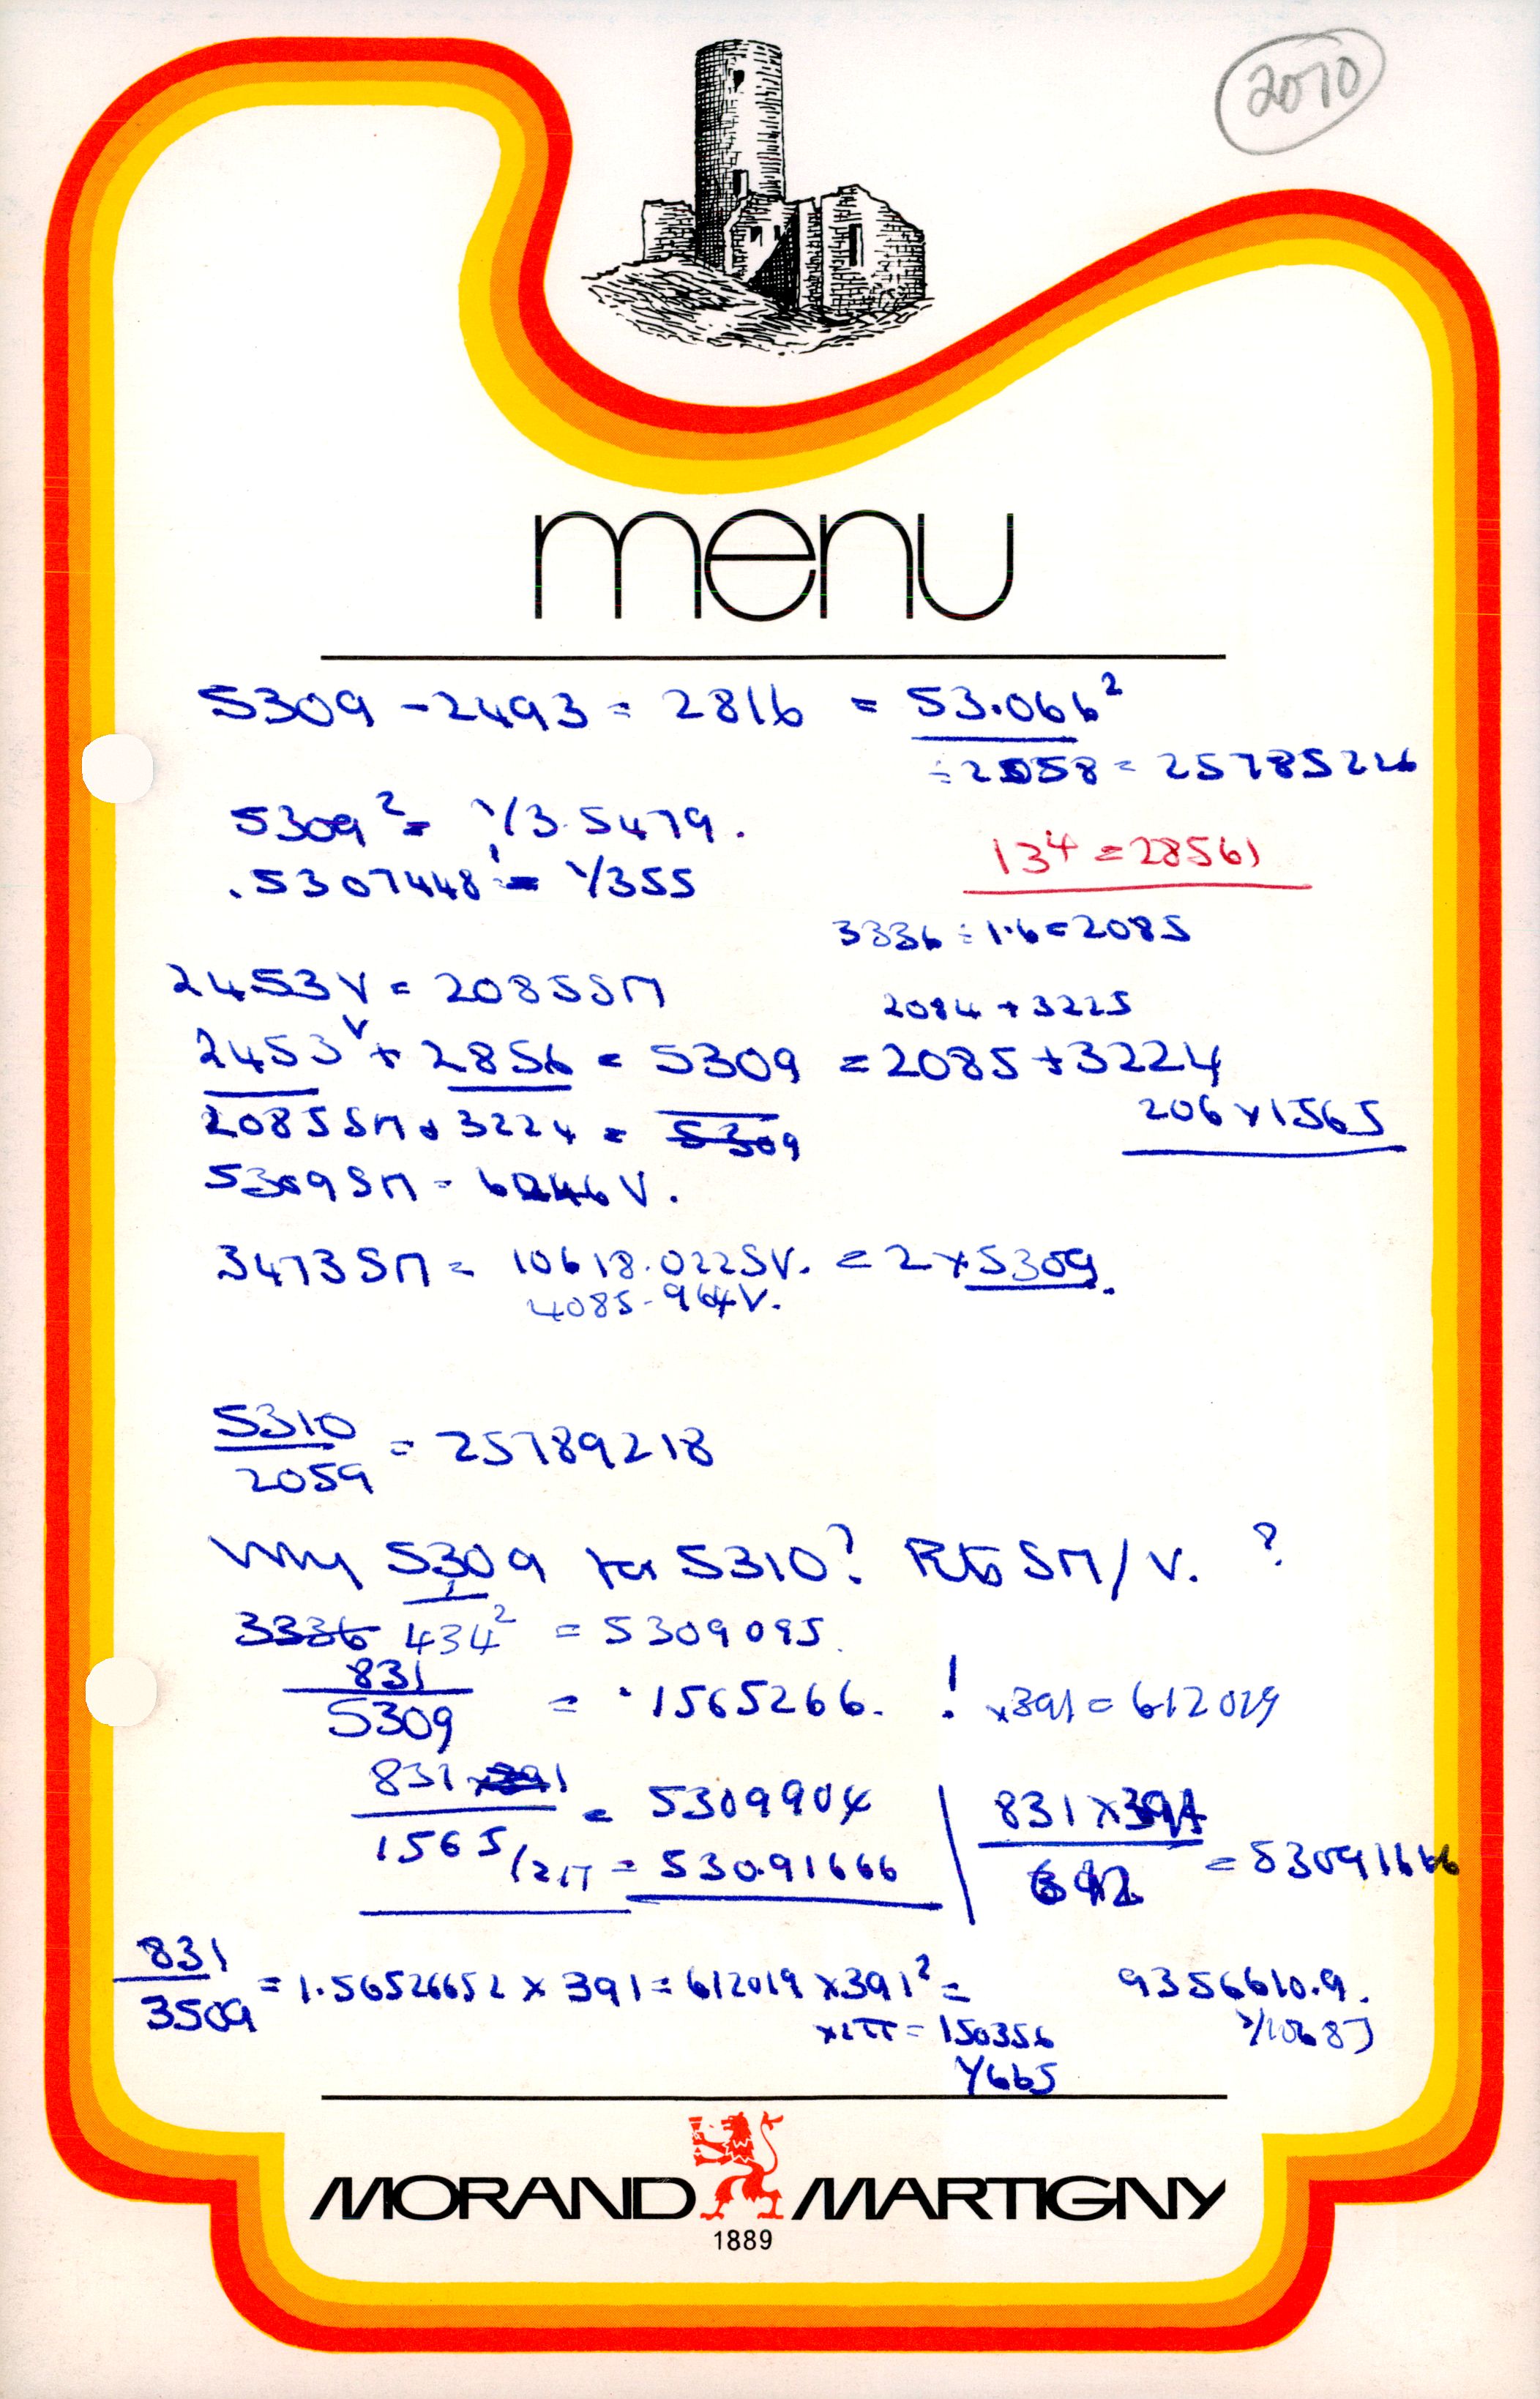 2070
menu
5309 - 2493 = 2816 = 53.066²
÷ 2058 = 25785226
5309² = 1/3.5479.
13⁴ = 28561
.5307448! = 1/355
3336 ÷ 1.6 = 2085
2453 V = 2085 SM
2084 + 3225
2453 V + 2856 = 5309 = 2085 + 3224
206 × 1565
2085 SM + 3224 = 5309
5309 SM = 6246 V.
3473 SM = 10618.0225 V. = 2 × 5309.
4085.964 V.
5310
2059 = 25789218
Why 5309 for 5310? SM/V. ?
3336 434² = 5309095.
831
5309 = .1565266. ! ×391 = 612019
831 ×391
1565/2π = 5309904
= 530.91666
831 × 391
612 = 53091666
831
3509 = 1.56526652 × 391 = 612019 × 391² = 9356610.9.
×2π = 150356
1/10687
1/665
MORAND MARTIGNY
1889